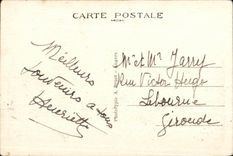 CARTE POSTALE
Meilleurs
souvenirs a tous
Henriette
Mr et Me Jarry
Rue Victor Hugo
Libourne
Gironde